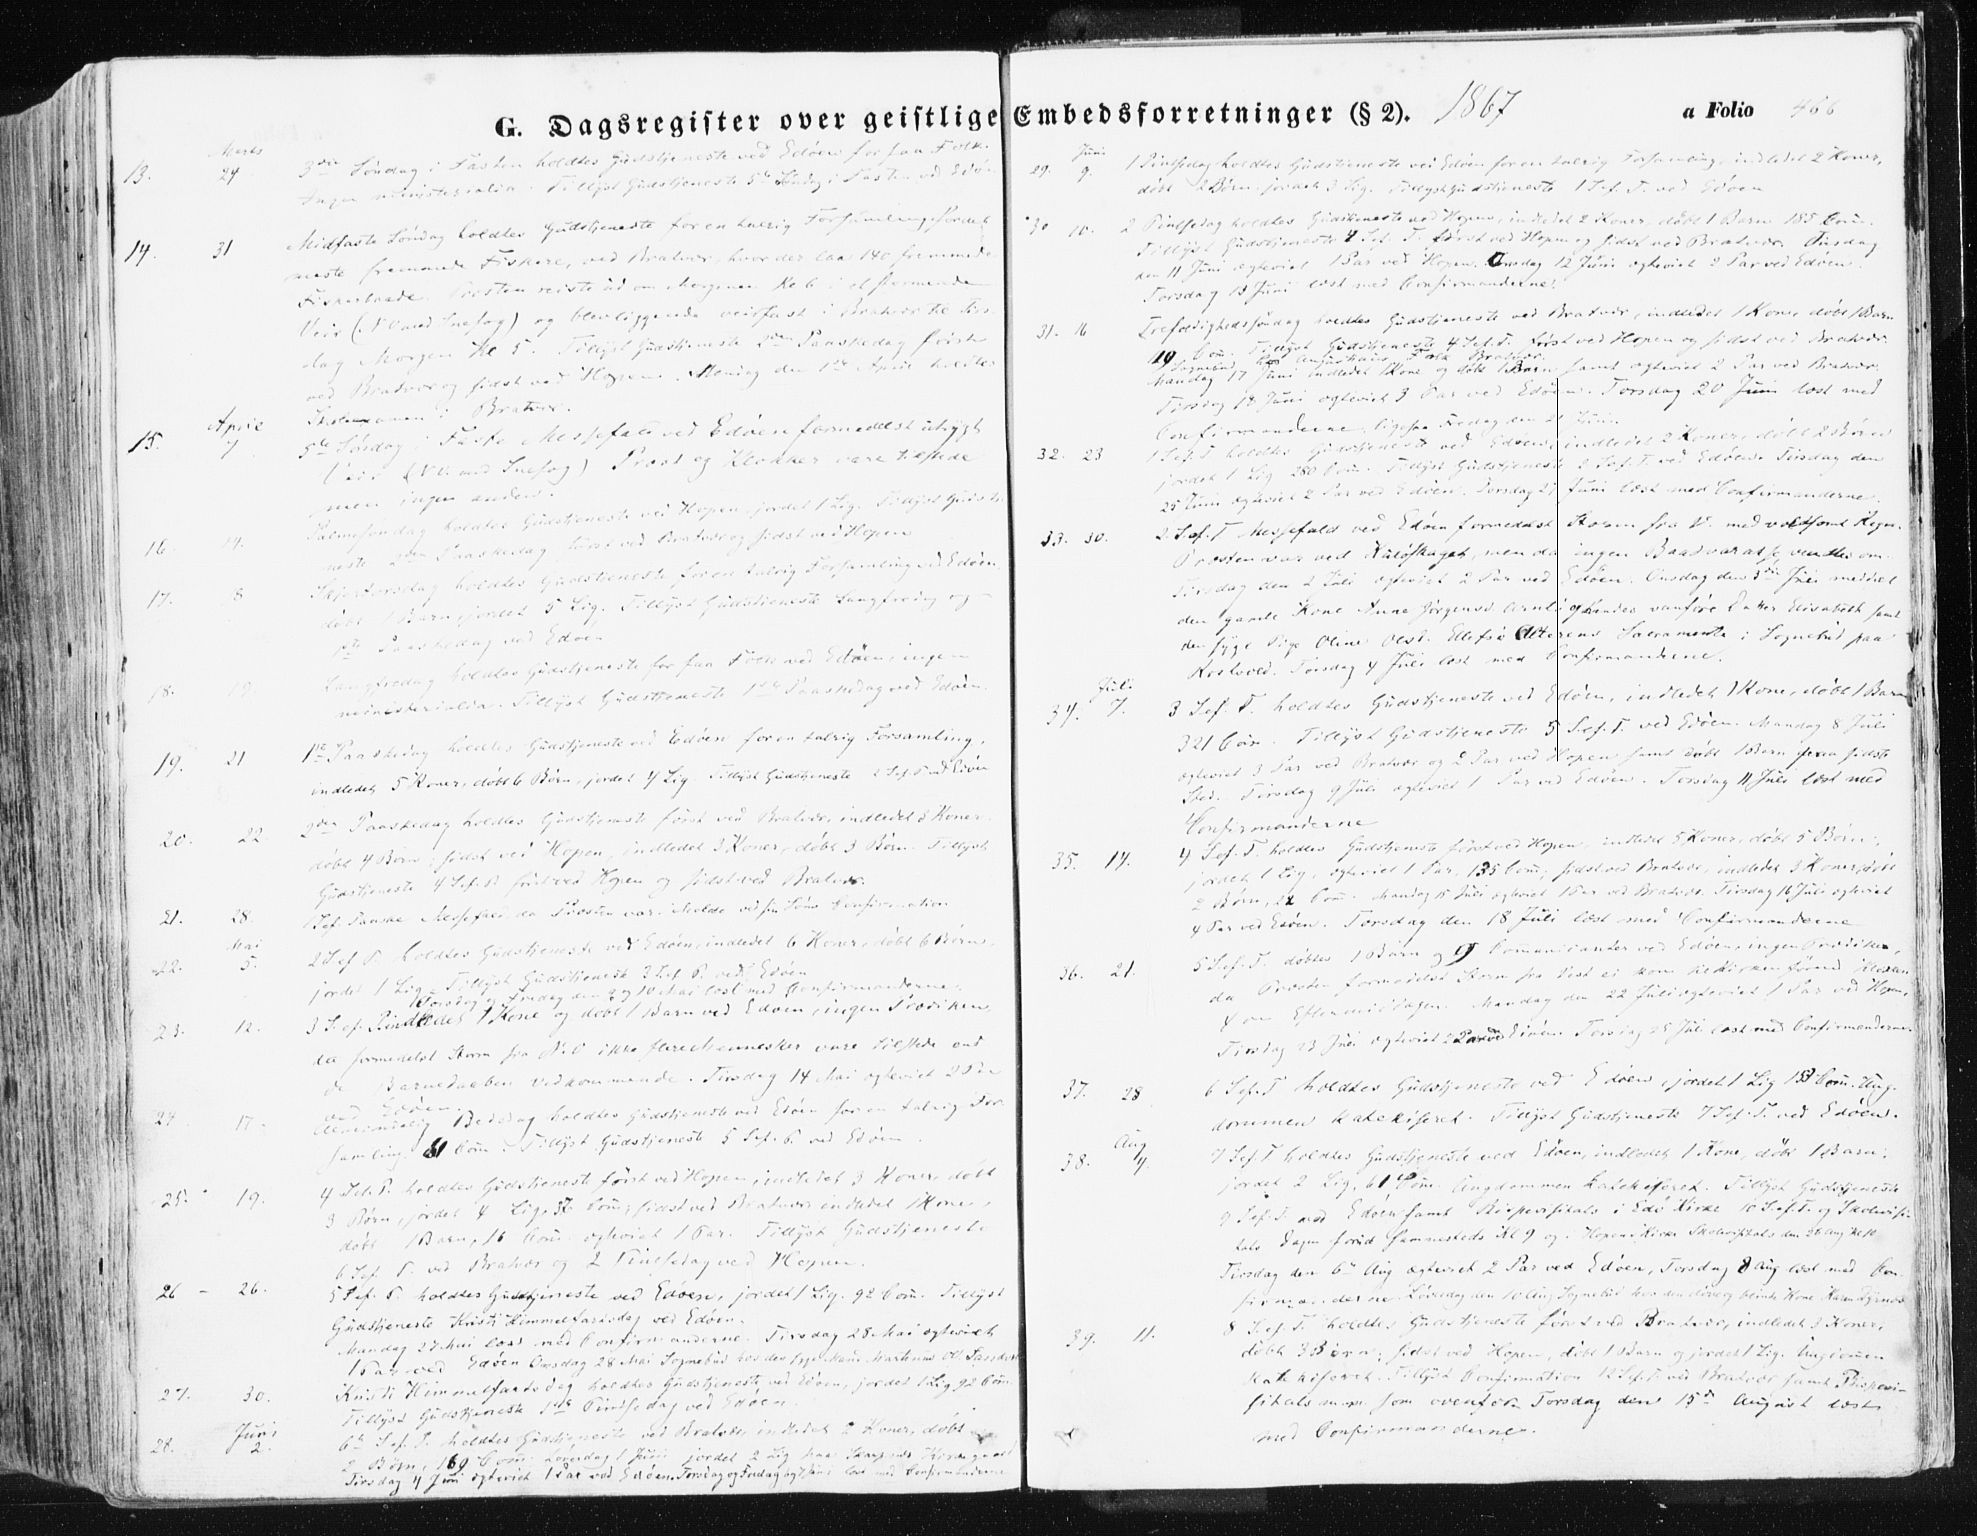 G. Dagsregister over geistlige Embedsforretninger (§ 2). 1867 a Folio 466
Marts
13. 24 3die Søndag i Fasten holdtes Gudstjeneste ved Edøen for faa Folk.
Ingen ministerialia. Tillyst Gudstjeneste 5te Søndag i Fasten ved Edøen
14. 31 Midfaste Søndag holdtes Gudstjeneste for en talrig Forsamling,
meste fremmede Fiskere, ved Bratvær, hvor der laae 140 fremmede
Fiskerbaade. Presten reiste ud om Morgenen Kl 6 i et stormende
Veir (NV med Snefog) og blev liggende veirfast i Bratvær til Tirs
dag Morgen Kl 5. Tillyst Gudstjeneste 2den Paaskedag først
ved Bratvær og sidst ved Hopen. Mandag den 1ste April holdtes
Skolexamen i Bratvær.
April
15. 7 5te Søndag i Faste Messefald ved Edøen formedelst utrygt
Veir (NV med Snefog) Præst og Klokker vare tilstede
men ingen anden.
16. 14. Palmesøndag holdtes Gudstjeneste ved Hopen, jordet 1 Lig. Tillyst Gudstje
neste 2den Paaskedag først ved Bratvær og sidst ved Hopen
17. 18 Skjærtorsdag holdtes Gudstjeneste for en talrig Forsamling ved Edøen,
døbt 1 Barn, jordet 5 Lig. Tillyst Gudstjeneste Langfredag og
1ste Paaskedag ved Edøen
18. 19 Langfredag holdtes Gudstjeneste for faa Folk ved Edøen, ingen
ministerialia. Tillyst Gudstjeneste 1ste Paaskedag ved Edøen.
19. 21 1ste Paaskedag holdtes Gudstjeneste ved Edøen for en talrig Forsamling,
indledet 5 Koner, døbt 6 Børn, jordet 4 Lig. Tillyst Gudstjeneste 2 S.ef.P. ved Edøen
20. 22. 2den Paaskedag holdtes Gudstjeneste først ved Bratvær, indledet 3 Koner
døbt 4 Børn; sidst ved Hopen, indledet 3 Koner, døbt 3 Børn. Tillyst
Gudstjeneste 4 S.ef.P. først ved Hopen og sidst ved Bratvær.
21. 28. 1 S.ef. Paaske Messefald, da Presten var i Molde ved sin Søns Confirmation
Mai
22. 5. 2 S.ef P. holdtes Gudstjeneste ved Edøen, indledet 6 Koner, døbt 6 Børn,
jordet 1 Lig. Tillyst Gudstjeneste 3 S.ef P. ved Edøen
Torsdag og Fredag den 9 og 10 Mai læst med Confirmanderne.
23. 12. 3 S.ef. P indledet 1 Kone og døbt 1 Barn ved Edøen, ingen Prædiken
da formedelst Storm fra N.V ikke flere Mennesker vare tilstede end
de Barnedaaben vedkommende. Tirsdag 14 Mai ægteviet 2 Par
ved Edøen.
24 17. Almindelig Bededag holdtes Gudstjeneste ved Edøen for en talrig For
samling. 81 Com. Tillyst Gudstjeneste 5 S.ef. P. ved Edøen.
25. 19. 4 S.ef.P. holdtes Gudstjeneste først ved Hopen, indledet 3 Koner, døbt
3 Børn, jordet 4 Lig, 36 Com; sidst ved Bratvær, indledet 1 Kone,
døbt 1 Barn, 16 Com. ægteviet 1 Par. Tillyst Gudstjeneste
6 S.ef. P. ved Bratvær og 2 Pintsedag ved Hopen.
26 - 26. 5 S.ef. P. holdtes Gudstjeneste ved Edøen, jordet 1 Lig. 92 Com. Tillyst
Gudstjeneste Kristi Himmelfartsdag ved Edøen.
Mandag 27 Mai læst med Confirmanderne. Tirsdag 28 Mai ægteviet
1 Par ved Edøen Onsdag 28 Mai Sognebud hos den syge
27. 30. Kristi Himmelfartsdag holdtes Gudstjeneste ved Edøen, jordet 1 Lig 92 Com.
Tillyst Gudstjeneste 1ste Pintsedag ved Edøen.
Juni
28. 2. 6te S.ef. P. holdtes Gudstjeneste ved Bratvær indledet 2 Koner, døbt
2 Børn, 169 Com. Løverdag 1 Juni jordet 2 Lig paa Kirkegaard
Tirsdag 4 Juni ægteviet 1 Par ved Edøen. Torsdag og Fredag læst med Confirmanderne
Juni
29. 9. 1 Pintsedag holdtes Gudstjeneste ved Edøen for en talrig Forsamling, indledet 2 Koner,
døbt 2 Børn, jordet 3 Lig. Tillyst Gudstjeneste 1 S.ef. T. ved Edøen
30 10. 2 Pintsedag holdtes Gudstjeneste ved Hopen, indledet 2 Koner, døbt 1 Barn 185 Com.
Tillyst Gudstjeneste 4 S.ef. T. først ved Hopen og sidst ved Bratvær. Tirsdag
den 11 Juni ægteviet 1 Par ved Hopen. Onsdag 12 Juni ægteviet 2 Par ved Edøen.
Torsdag 13 Juni læst med Confirmanderne.
31. 16 Trefoldighedssøndag holdtes Gudstjeneste ved Bratvær, indledet 1 Kone, døbt 1 Barn
119 Com. Tillyst Gudstjeneste 4 S.ef.T. først ved Hopen og sidst ved Bratvær.
Mandag 17 Juni indledet 1 Kone og døbt 1 Barn samt ægteviet 2 Par ved Bratvær.
Tirsdag 18 Juni ægteviet 3 Par ved Edøen. Torsdag 20 Juni læst med
Confirmanderne, ligesaa Fredag den 21 Juni.
32. 23 1 S.ef.T. holdtes Gudstjeneste ved Edøen, indledet 2 Koner, døbt 2 Børn
jordet 1 Lig 280 Com. Tillyst Gudstjeneste 3 S.ef.T. ved Edøen. Tirsdag den
25 Juni ægteviet 2 Par ved Edøen. Torsdag 27 Juni læst med Confirmanderne.
33. 30. 2 S.ef.T Messefald ved Edøen formedelst Storm fra V. med voldsomt Regn.
Presten var ved men da ingen Baad var at se vendtes om.
Tirsdag den 2 Juli ægteviet 2 Par ved Edøen. Onsdag den 3die Juli meddelt
den gamle Kone Anne Jørgensd. og hendes vanføre Datter Elisabeth samt
den syge Pige Oline Olsd. Alterens Sacramente i Sognebud paa
Torsdag 4 Juli læst med Confirmanderne.
Juli
34. 7. 3 S.ef. T. holdtes Gudstjeneste ved Edøen, indledet 1 Kone, døbt 1 Barn
321 Com. Tillyst Gudstjeneste 5 S.ef.T. ved Edøen. Mandag 8 Juli
ægteviet 3 Par ved Bratvær og 2 Par ved Hopen samt døbt 1 Barn paa sidste
Sted. Tirsdag 9 Juli ægteviet 1 Par ved Edøen. Torsdag 11 Juli læst med
Confirmanderne
35. 14. 4 S.ef.T. holdtes Gudstjeneste først ved Hopen, indledet 5 Koner, døbt 5 Børn,
jordet 1 Lig, ægteviet 1 Par, 135 Com; sidst ved Bratvær, indledet 3 Koner, døbt
2 Børn, 22 Com. Mandag 15 Juli ægteviet 1 Par ved Bratvær. Tirsdag 16 Juli ægteviet
4 Par ved Edøen. Torsdag den 18 Juli læst med Confirmanderne
36. 21. 5 S.ef.T. døbtes 1 Barn og 9 Comunicanter ved Edøen, ingen Prædiken,
da Presten formedelst Storm fra Vest ei kom til Kirken førend Klokken
4 om Eftermiddagen. Mandag den 22 Juli ægteviet 1 Par ved Hopen,
Tirsdag 23 Juli ægteviet 2 Par ved Edøen. Torsdag 25 Juli læst med Confirmanderne.
37. 28 6 S.ef.T holdtes Gudstjeneste ved Edøen, jordet 1 Lig 153 Com. Ung-
dommen katekiseret. Tillyst Gudstjeneste 7 S.ef.T. ved Edøen.
Aug
38. 4. 7 S.ef.T holdtes Gudstjeneste ved Edøen, indledet 1 Kone, døbt 1 Barn.
jordet 2 Lig, 61 Com. Ungdommen katekiseret. Tillyst Gudstjeneste
9 S.ef.T ved Edøen samt Bispevisitats i Edø Kirke 10 S.ef.T. og Skolevisi
tats Dagen forud sammesteds Kl 9 og i Hopens Kirke Skolevisitats den 26 Aug Kl 10
Tirsdag den 6te Aug ægteviet 2 Par ved Edøen, Torsdag 8 Aug læst med Con
firmanderne. Løverdag den 10 Aug Sognebud hos den blinde Kone
39. 11. 8 S.ef.T. holdtes Gudstjeneste først ved Bratvær, indledet 3 Koner,
døbt 3 Børn; sidst ved Hopen, døbt 1 Barn og jordet 1 Lig. Ungdommen
katekiseret. Tillyst Confirmation 12 S.ef.T. ved Bratvær samt Bispevi-
sitats m.m. som ovenfor. Torsdag den 15de August læst
med Confirmanderne.